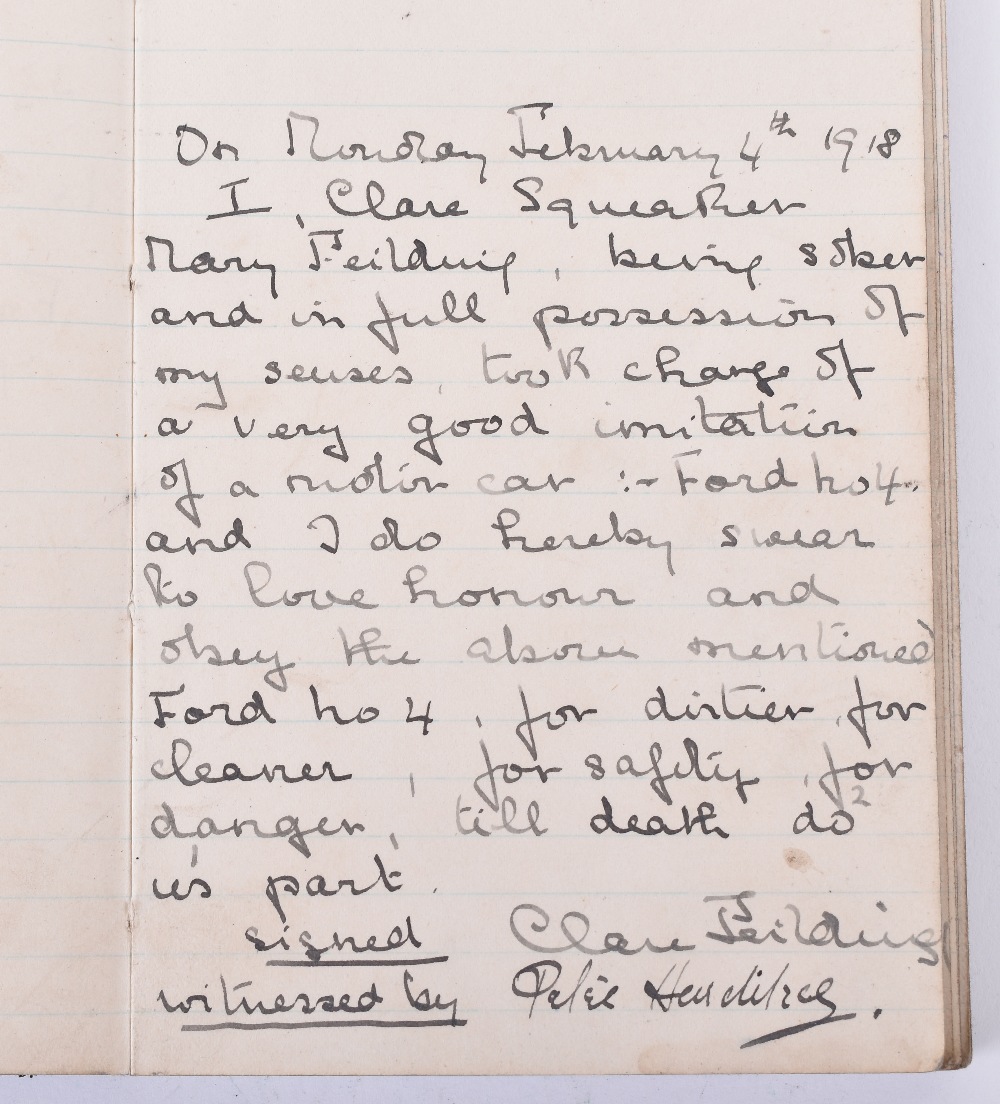 On Monday February 4th 1918
I, Clare Squeaker
Mary Feilding, being sober
and in full possession of
my senses, took charge of
a very good imitation
of a motor car :- Ford no 4.
and I do hereby swear
to love honour and
obey the above mentioned
Ford no 4, for dirtier, for
cleaner, for safety, for
danger, till death do 2
us 1 part.
signed Clare Feilding
witnessed by